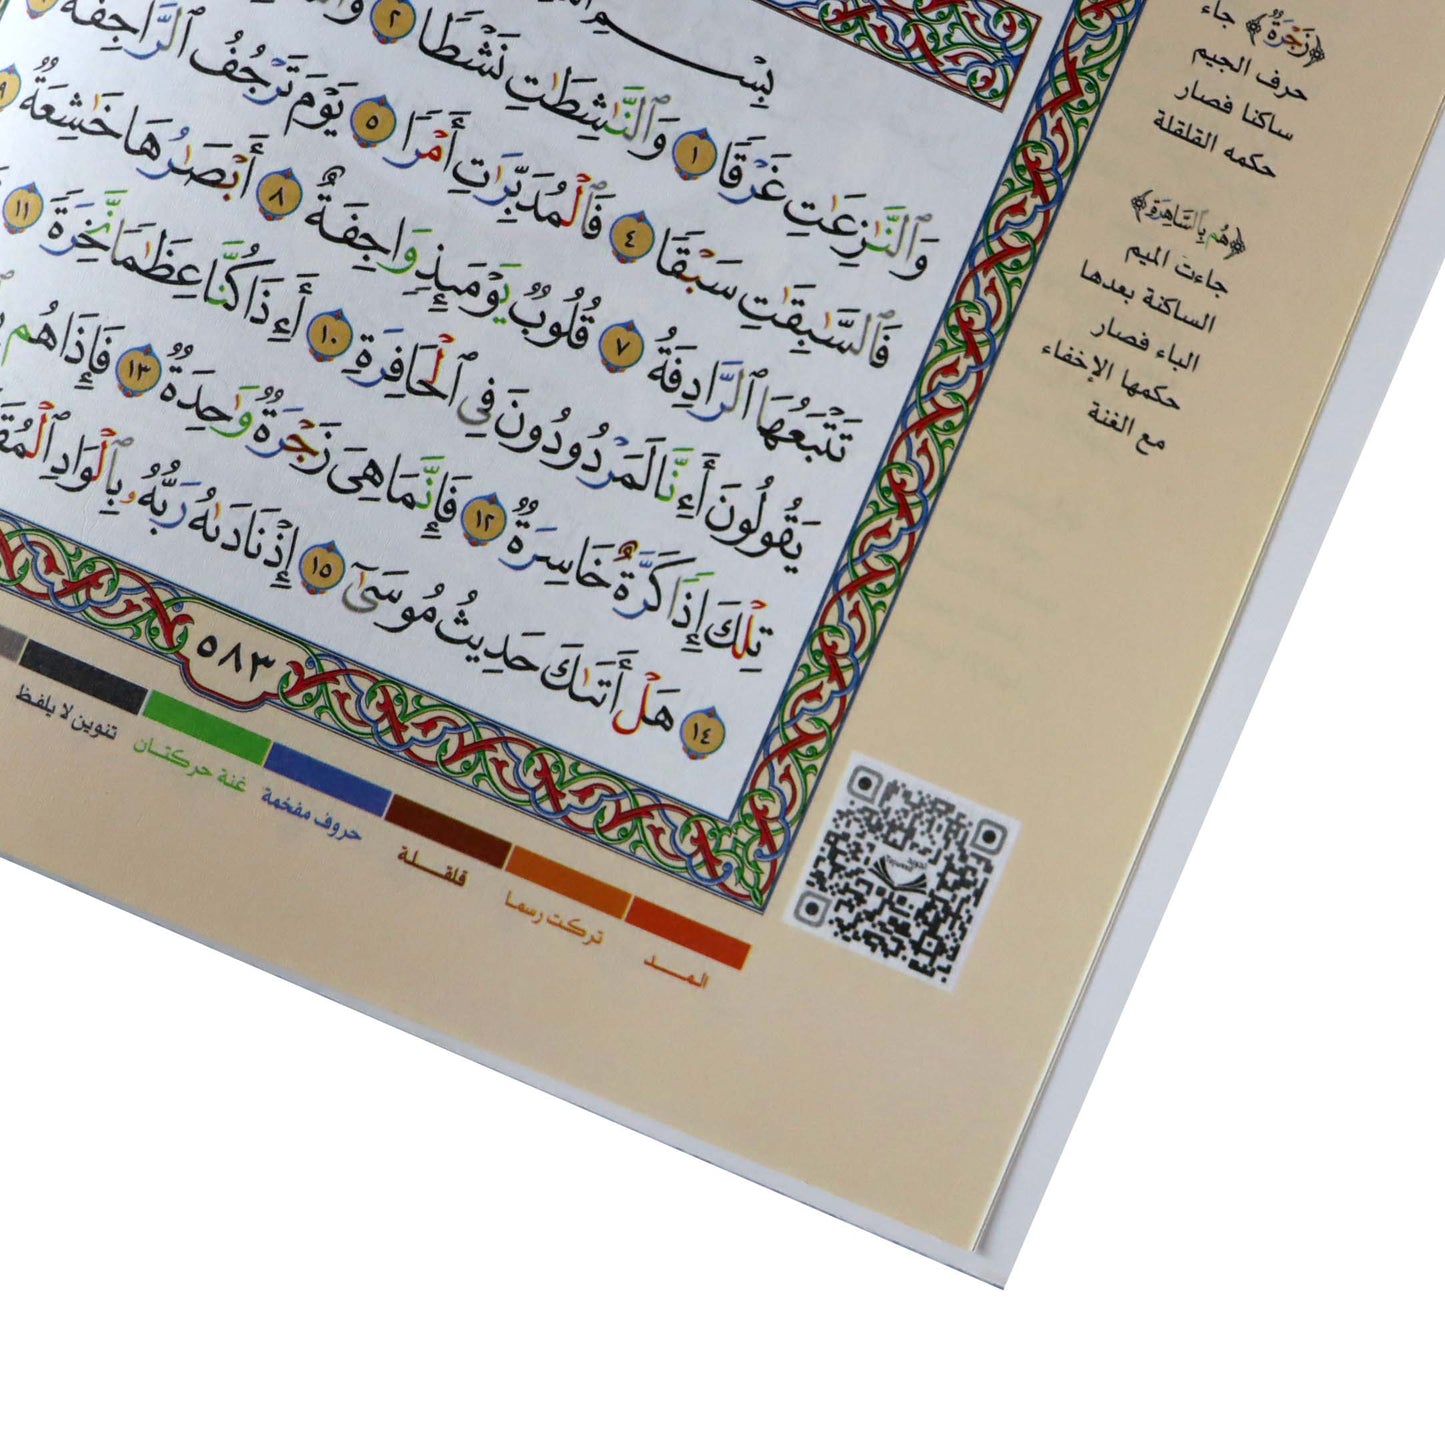 بِسْمِ
وَٱلنَّٰزِعَٰتِ غَرْقًا ١ وَٱلنَّٰشِطَٰتِ نَشْطًا ٢
فَٱلسَّٰبِقَٰتِ سَبْقًا ٤ فَٱلْمُدَبِّرَٰتِ أَمْرًا ٥ يَوْمَ تَرْجُفُ ٱلرَّاجِفَةُ
تَتْبَعُهَا ٱلرَّادِفَةُ ٧ قُلُوبٌ يَوْمَئِذٍ وَاجِفَةٌ ٨ أَبْصَٰرُهَا خَٰشِعَةٌ ٩
يَقُولُونَ أَءِنَّا لَمَرْدُودُونَ فِي ٱلْحَافِرَةِ ١٠ أَءِذَا كُنَّا عِظَٰمًا نَّخِرَةً ١١
تِلْكَ إِذًا كَرَّةٌ خَاسِرَةٌ ١٢ فَإِنَّمَا هِىَ زَجْرَةٌ وَٰحِدَةٌ ١٣ فَإِذَا هُم
١٤ هَلْ أَتَىٰكَ حَدِيثُ مُوسَىٰٓ ١٥ إِذْ نَادَىٰهُ رَبُّهُۥ بِٱلْوَادِ
٥٨٣
﴿زَجْرَةٌ﴾ جاء
حرف الجيم
ساكنا فصار
حكمه القلقلة
﴿هُم بِٱلسَّاهِرَةِ﴾
جاءت الميم
الساكنة بعدها
الباء فصار
حكمها الإخفاء
مع الغنة
المـد
تركت رسما
قلقـلة
حروف مفخمة
غنة حركتـان
تنوين لا يلفظ